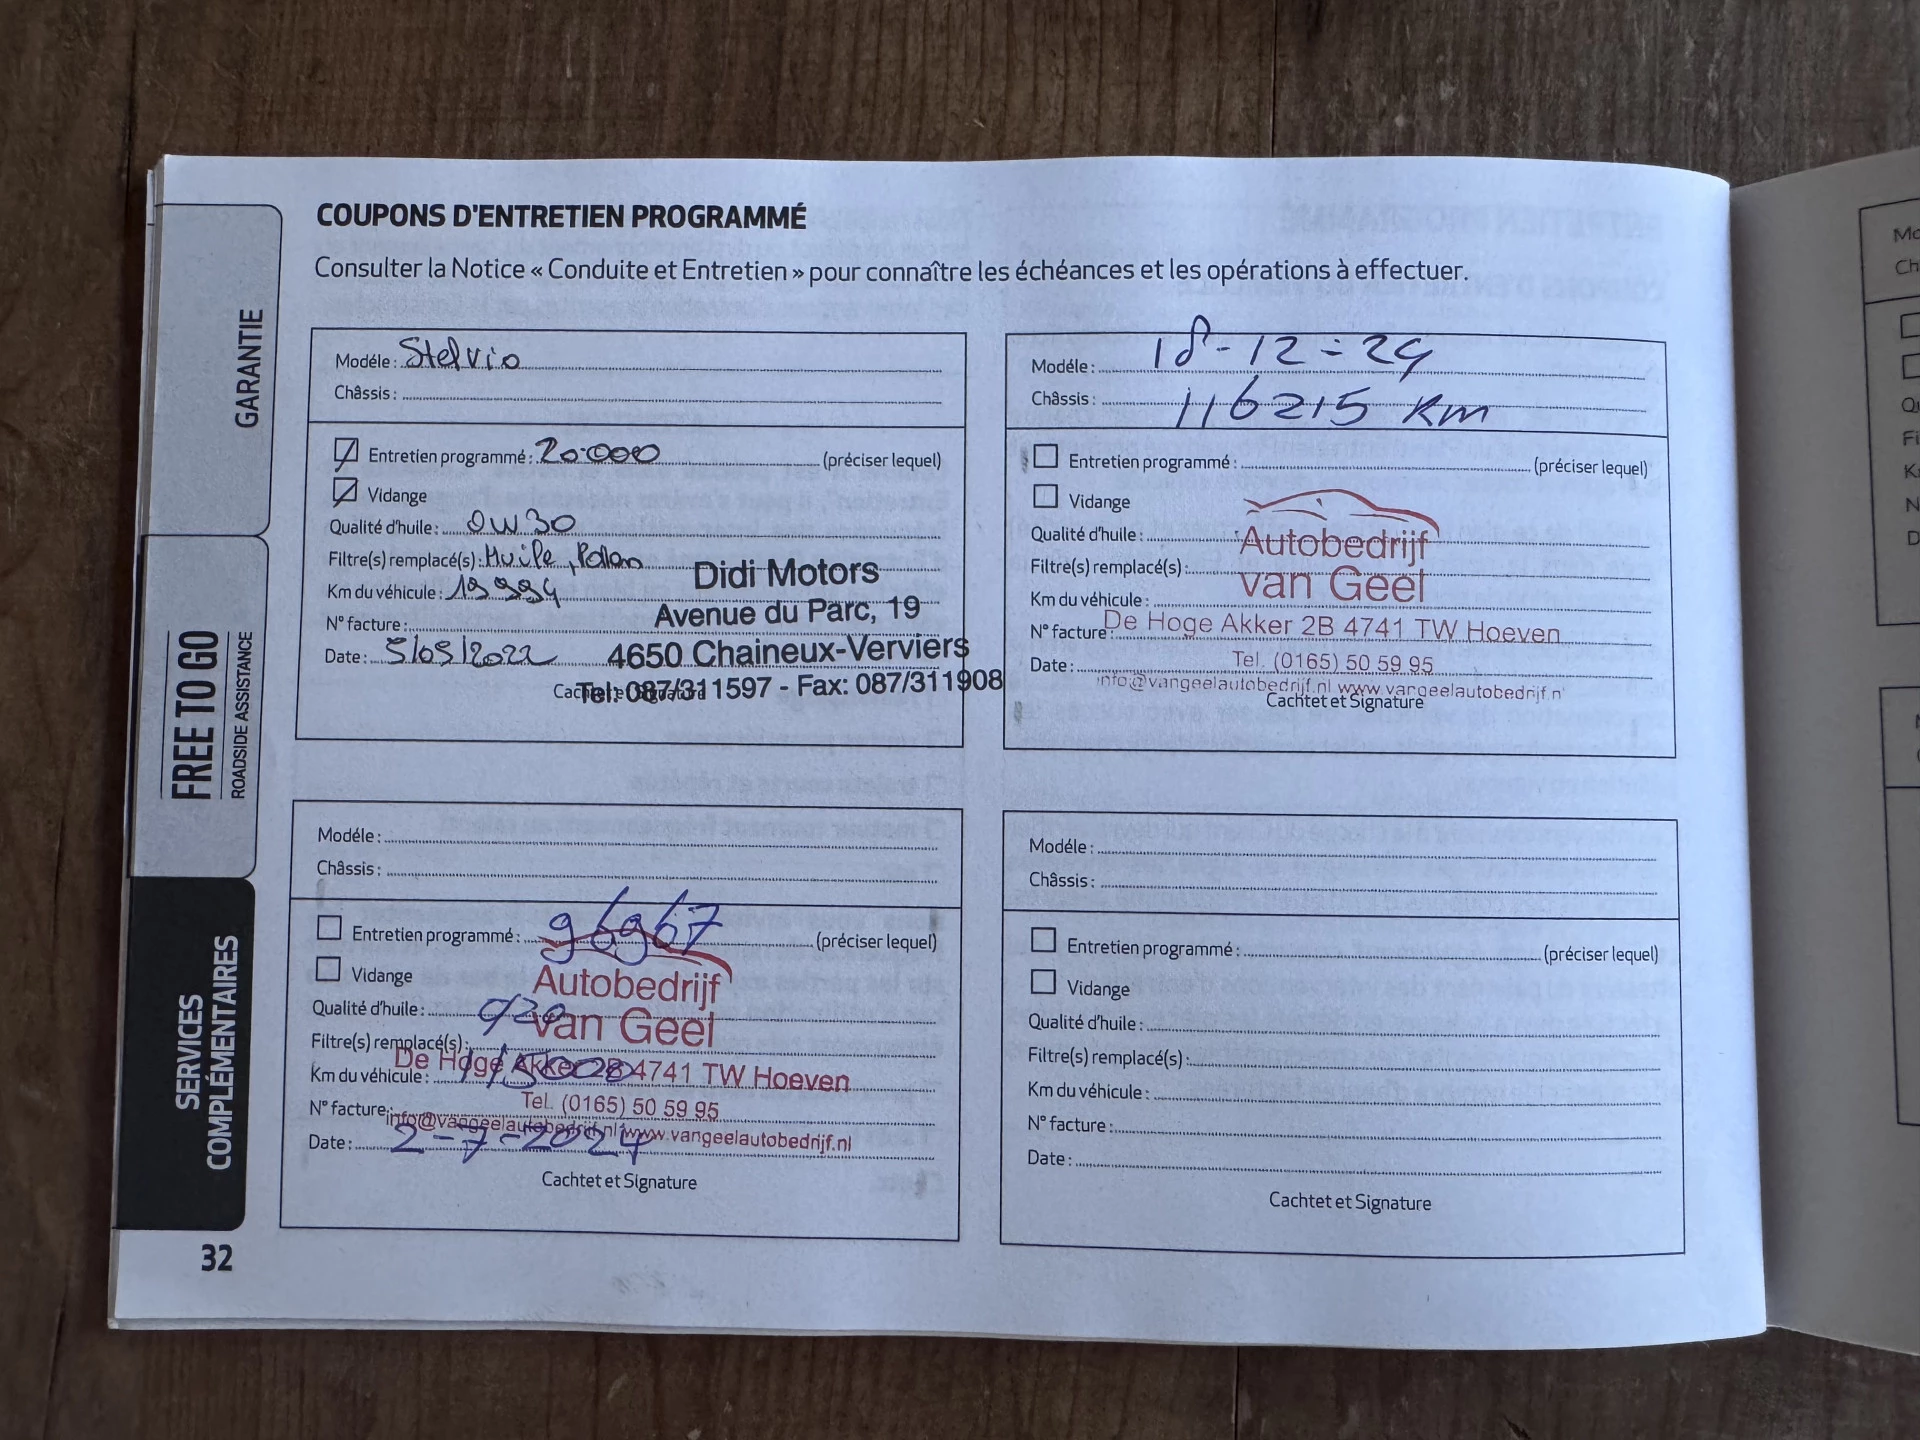 COUPONS D'ENTRETIEN PROGRAMMÉ
Consulter la Notice « Conduite et Entretien » pour connaître les échéances et les opérations à effectuer.
GARANTIE
FREE TO GO
ROADSIDE ASSISTANCE
SERVICES
COMPLÉMENTAIRES
32
Modéle : Stelvio
Châssis :
Entretien programmé : 20.000 (préciser lequel)
Vidange
Qualité d'huile : 0W30
Filtre(s) remplacé(s) : Huile, Pollen
Km du véhicule : 19 994
N° facture :
Date : 5/05/2022
Cachtet et Signature
Didi Motors
Avenue du Parc, 19
4650 Chaineux-Verviers
Tel: 087/311597 - Fax: 087/311908
Modéle : 18-12-24
Châssis : 116215 km
Entretien programmé : (préciser lequel)
Vidange
Qualité d'huile :
Filtre(s) remplacé(s) :
Km du véhicule :
N° facture :
Date :
Autobedrijf
van Geel
De Hoge Akker 2B 4741 TW Hoeven
Tel. (0165) 50 59 95
info@vangeelautobedrijf.nl www.vangeelautobedrijf.n
Cachtet et Signature
Modéle :
Châssis :
Entretien programmé : 96967 (préciser lequel)
Vidange
Qualité d'huile :
Filtre(s) remplacé(s) :
Km du véhicule : 115000
N° facture :
Date : 2-7-2024
Autobedrijf
van Geel
De Hoge Akker 2B 4741 TW Hoeven
Tel. (0165) 50 59 95
info@vangeelautobedrijf.nl www.vangeelautobedrijf.nl
Cachtet et Signature
Modéle :
Châssis :
Entretien programmé : (préciser lequel)
Vidange
Qualité d'huile :
Filtre(s) remplacé(s) :
Km du véhicule :
N° facture :
Date :
Cachtet et Signature